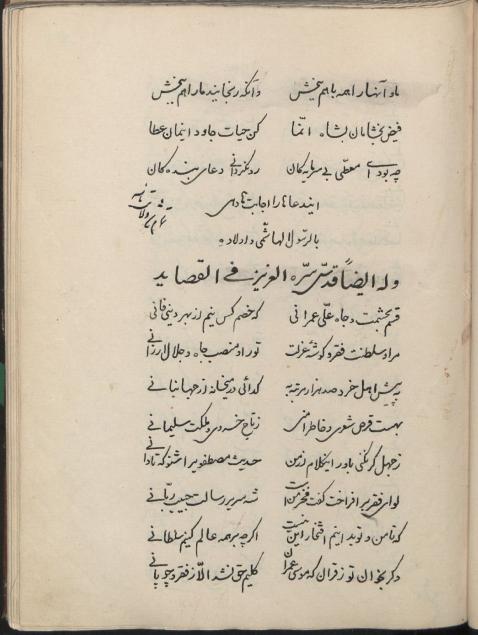 ما و آنها را همه با هم ببخش وانکه رنجانید ما را هم ببخش
فیض بخشا مان بشاه انّما کن حیات جاودانیمان عطا
چه بود ای معطی بی سرمایه‌کان رد نکردانی دعای بنده‌کان
ایندعاها را اجابت تا دمی
بالرّسول الهاشمی و اولاده
وله ایضاً قدسّ سرّه العزیز فی القصاید
قسم بحشمت و جاه علّی عمرانی که خصم کس نیم از بهر دنیی فانی
مراد سلطنت فقر و کوشهٔ عزلت تو را و منصب و جاه و جلال ارزانی
به پیش اهل خرد صد هزار مرتبه به کدائی در میخانه از جهانبانی
بهست قرص شوی و خاطر امنی ز تاج خسروی و ملکت سلیمانی
ز جهل کر نکنی باور اینکلام ز من حدیث مصطفوی را شنو که تا دانی
لوای فقر برافراخت کفت فخر من است شه سریر رسالت حبیب ربّانی
که تا من و تو بدانیم افتخار این نیست اکرچه بر همه عالم کنیم سلطانی
دکر بخوان تو ز قرآن که موسی عمران کلیم حق نشد الّا ز فقر و چوپانی